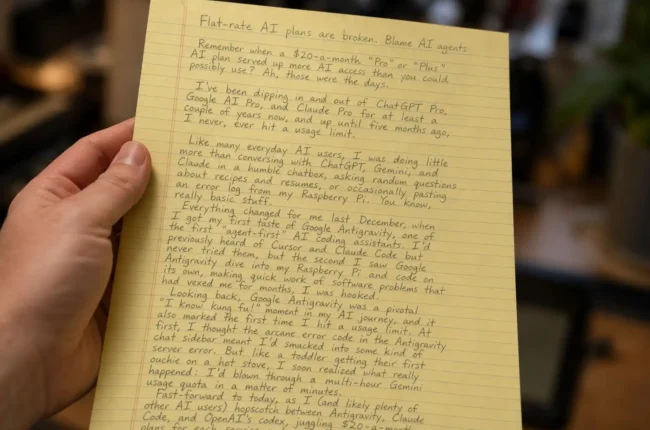 Flat-rate AI plans are broken. Blame AI agents
Remember when a $20-a-month "Pro" or "Plus"
AI plan served up more AI access than you could
possibly use? Ah, those were the days.
I've been dipping in and out of ChatGPT Pro,
Google AI Pro, and Claude Pro for at least a
couple of years now, and up until five months ago,
I never, ever hit a usage limit.
Like many everyday AI users, I was doing little
more than conversing with ChatGPT, Gemini, and
Claude in a humble chatbox, asking random questions
about recipes and resumes, or occasionally pasting
an error log from my Raspberry Pi. You know,
really basic stuff.
Everything changed for me last December, when
I got my first taste of Google Antigravity, one of
the first "agent-first" AI coding assistants. I'd
previously heard of Cursor and Claude Code but
never tried them, but the second I saw Google
Antigravity dive into my Raspberry Pi and code on
its own, making quick work of software problems that
had vexed me for months, I was hooked.
Looking back, Google Antigravity was a pivotal
"I know kung fu!" moment in my AI journey, and it
also marked the first time I hit a usage limit. At
first, I thought the arcane error code in the Antigravity
chat sidebar meant I'd smacked into some kind of
server error. But like a toddler getting their first
ouchie on a hot stove, I soon realized what really
happened: I'd blown through a multi-hour Gemini
usage quota in a matter of minutes.
Fast-forward to today, as I (and likely plenty of
other AI users) hopscotch between Antigravity, Claude
Code, and OpenAI's codex, juggling $20-a-month
plans for each